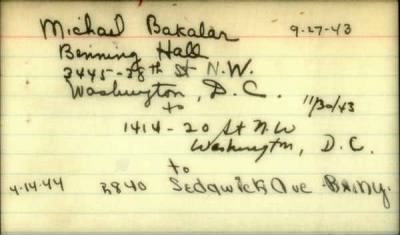 Michael Bakalar 9-27-43
Benning Hall
3445-38th St N.W.
Washington, D.C.
to 11/30/43
1414-20 St N.W
Washington, D.C.
to
4-14-44 2840 Sedgwick Ave Bx. N.Y.